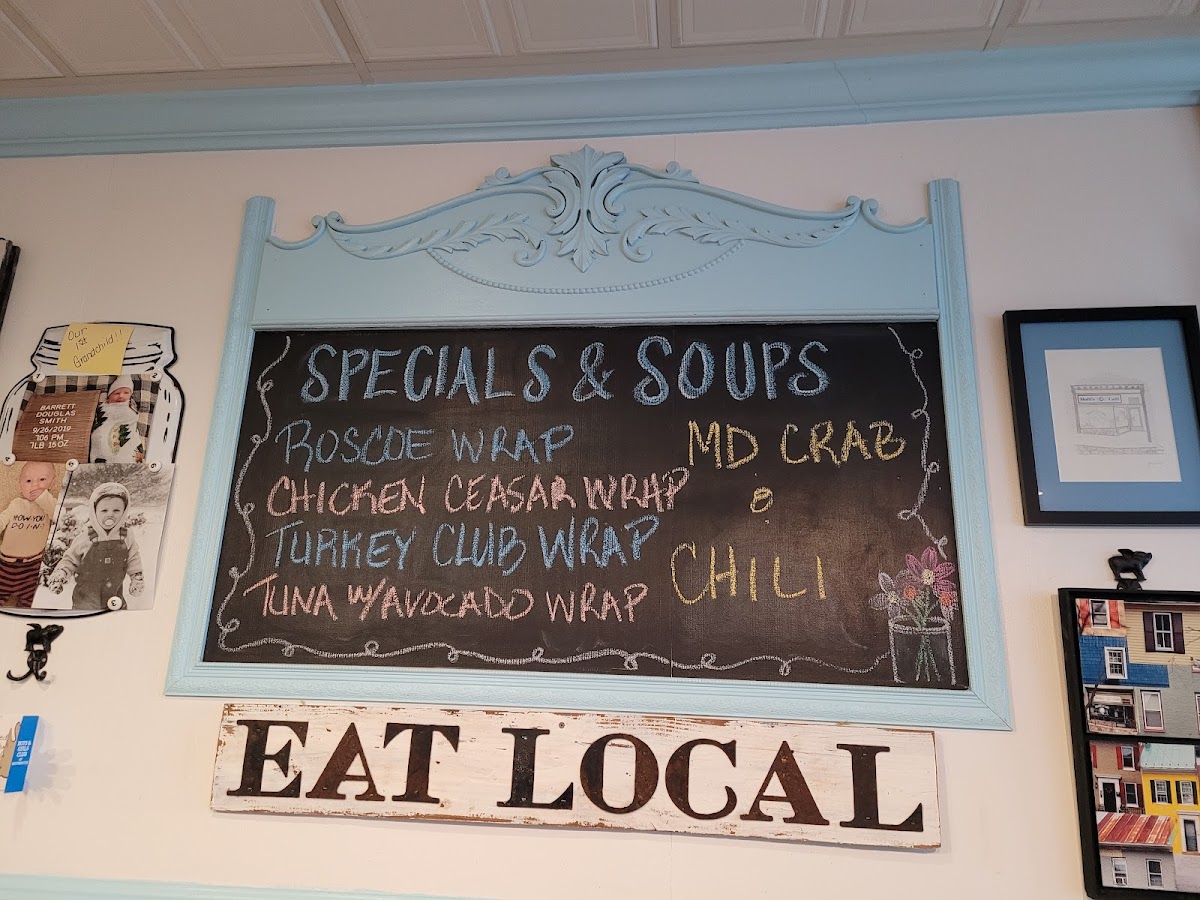 SPECIALS & SOUPS
ROSCOE WRAP
CHICKEN CEASAR WRAP
TURKEY CLUB WRAP
TUNA W/AVOCADO WRAP
MD CRAB
&
CHILI
EAT LOCAL
Our
1st
Grandchild!!
BARRETT
DOUGLAS
SMITH
9/26/2019
7:06 PM
7LB 15 OZ
HOW YOU
DOIN